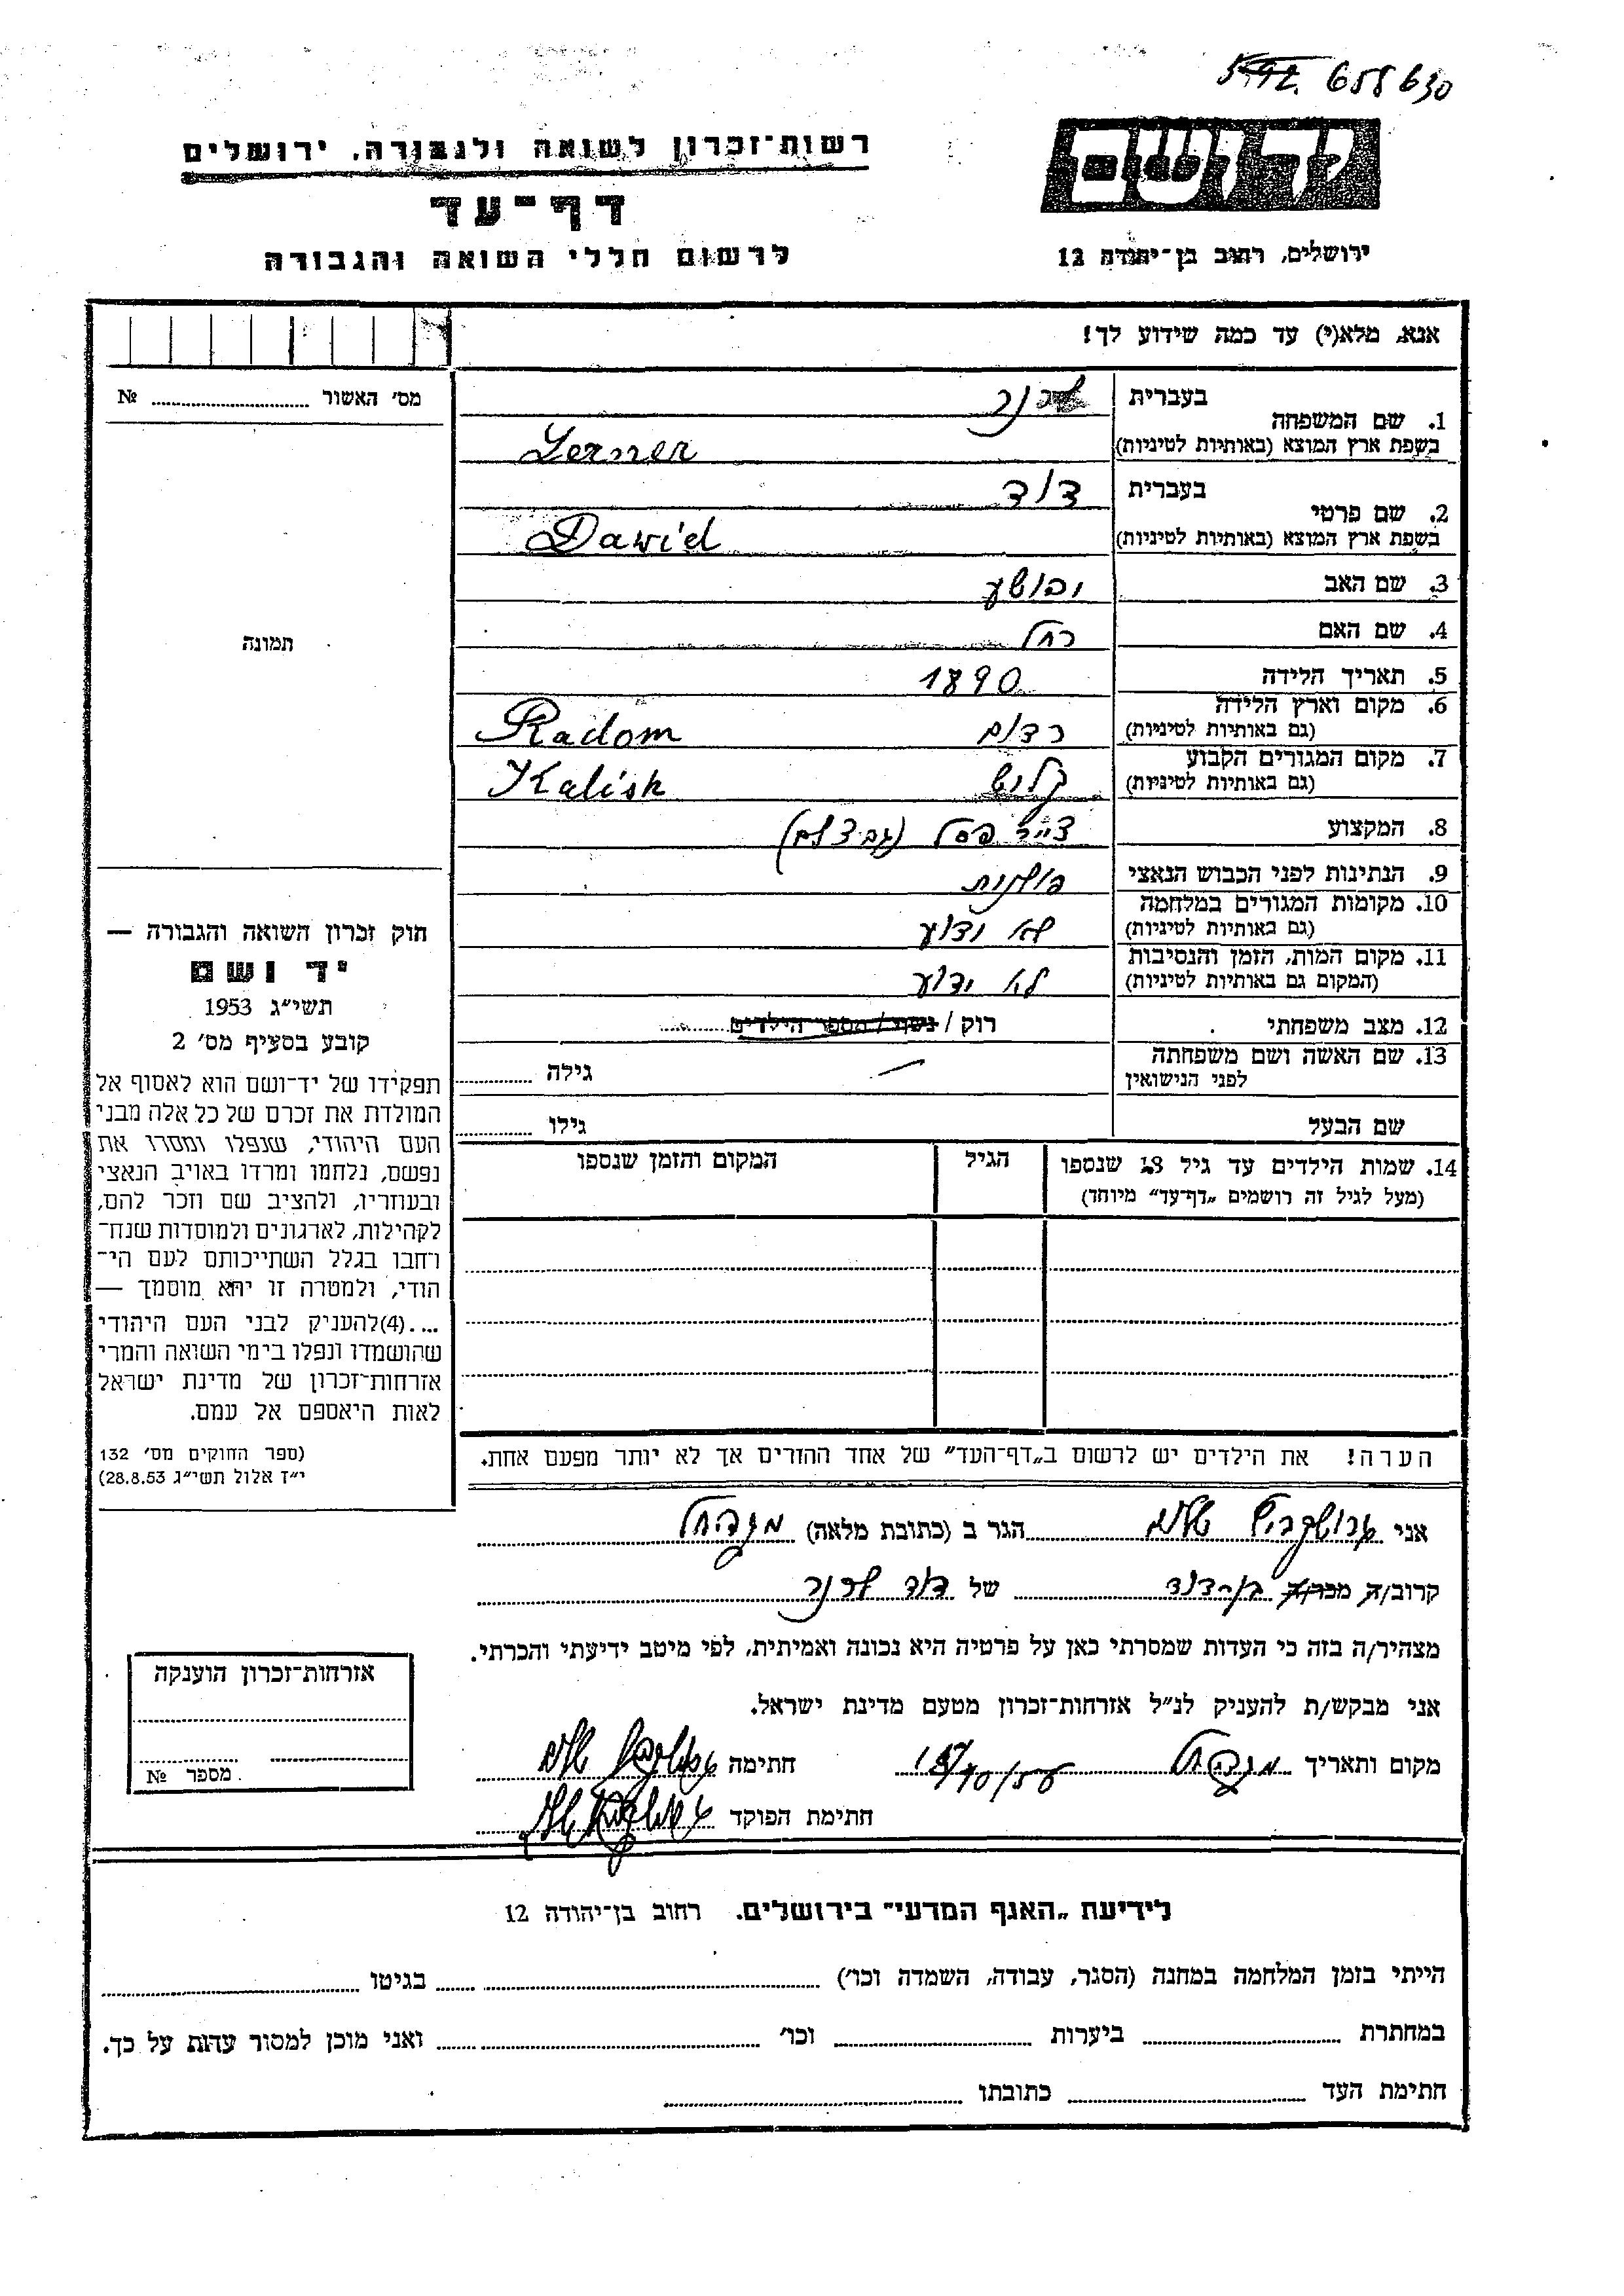 658630
רשות־זכרון לשואה ולגבורה, ירושלים
יד ושם
דף־עד
לרשום חללי השואה והגבורה
ירושלים, רחוב בן־יהודה 12
אנא, מלא(י) עד כמה שידוע לך!
מס׳ האשור № 
1. שם המשפחה
בעברית לרנר
בשפת ארץ המוצא (באותיות לטיניות) Lerner
2. שם פרטי
בעברית דוד
בשפת ארץ המוצא (באותיות לטיניות) Dawid
3. שם האב יהושע
4. שם האם רחל
תמונה
5. תאריך הלידה 1890
6. מקום וארץ הלידה
(גם באותיות לטיניות) רדום Radom
7. מקום המגורים הקבוע
(גם באותיות לטיניות) קליש Kalish
8. המקצוע צייר פסל
9. הנתינות לפני הכבוש הנאצי פולנית
10. מקומות המגורים במלחמה
(גם באותיות לטיניות) לא ידוע
11. מקום המות, הזמן והנסיבות
(המקום גם באותיות לטיניות) לא ידוע
12. מצב משפחתי רוק / נשוי / מספר הילדים
13. שם האשה ושם משפחתה
לפני הנישואין גילה
שם הבעל גילו
14. שמות הילדים עד גיל 18 שנספו הגיל המקום והזמן שנספו
(מעל לגיל זה רושמים „דף־עד” מיוחד)
חוק זכרון השואה והגבורה —
יד ושם
תשי״ג 1953
קובע בסעיף מס׳ 2
תפקידו של יד־ושם הוא לאסוף אל
המולדת את זכרם של כל אלה מבני
העם היהודי, שנפלו ומסרו את
נפשם, נלחמו ומרדו באויב הנאצי
ובעוזריו, ולהציב שם וזכר להם,
לקהילות, לארגונים ולמוסדות שנח־
רחבו בגלל השתייכותם לעם הי־
הודי, ולמטרה זו יהא מוסמך —
....(4)להעניק לבני העם היהודי
שהושמדו ונפלו בימי השואה והמרי
אזרחות־זכרון של מדינת ישראל
לאות היאספם אל עמם.
(ספר החוקים מס׳ 132
י״ז אלול תשי״ג 28.8.53)
הערה! את הילדים יש לרשום ב„דף־העד” של אחד ההורים אך לא יותר מפעם אחת.
אני הגר ב (כתובת מלאה)
קרוב/ה מכר/ה בן־דוד של דוד לרנר
מצהיר/ה בזה כי העדות שמסרתי כאן על פרטיה היא נכונה ואמיתית, לפי מיטב ידיעתי והכרתי.
אני מבקש/ת להעניק לנ״ל אזרחות־זכרון מטעם מדינת ישראל.
מקום ותאריך חתימה
חתימת הפוקד
אזרחות־זכרון הוענקה
מספר №
לידיעת „האגף המדעי” בירושלים. רחוב בן־יהודה 12
הייתי בזמן המלחמה במחנה (הסגר, עבודה, השמדה וכו׳) בגיטו
במחתרת ביערות וכו׳ ואני מוכן למסור עדות על כך.
חתימת העד כתובתו